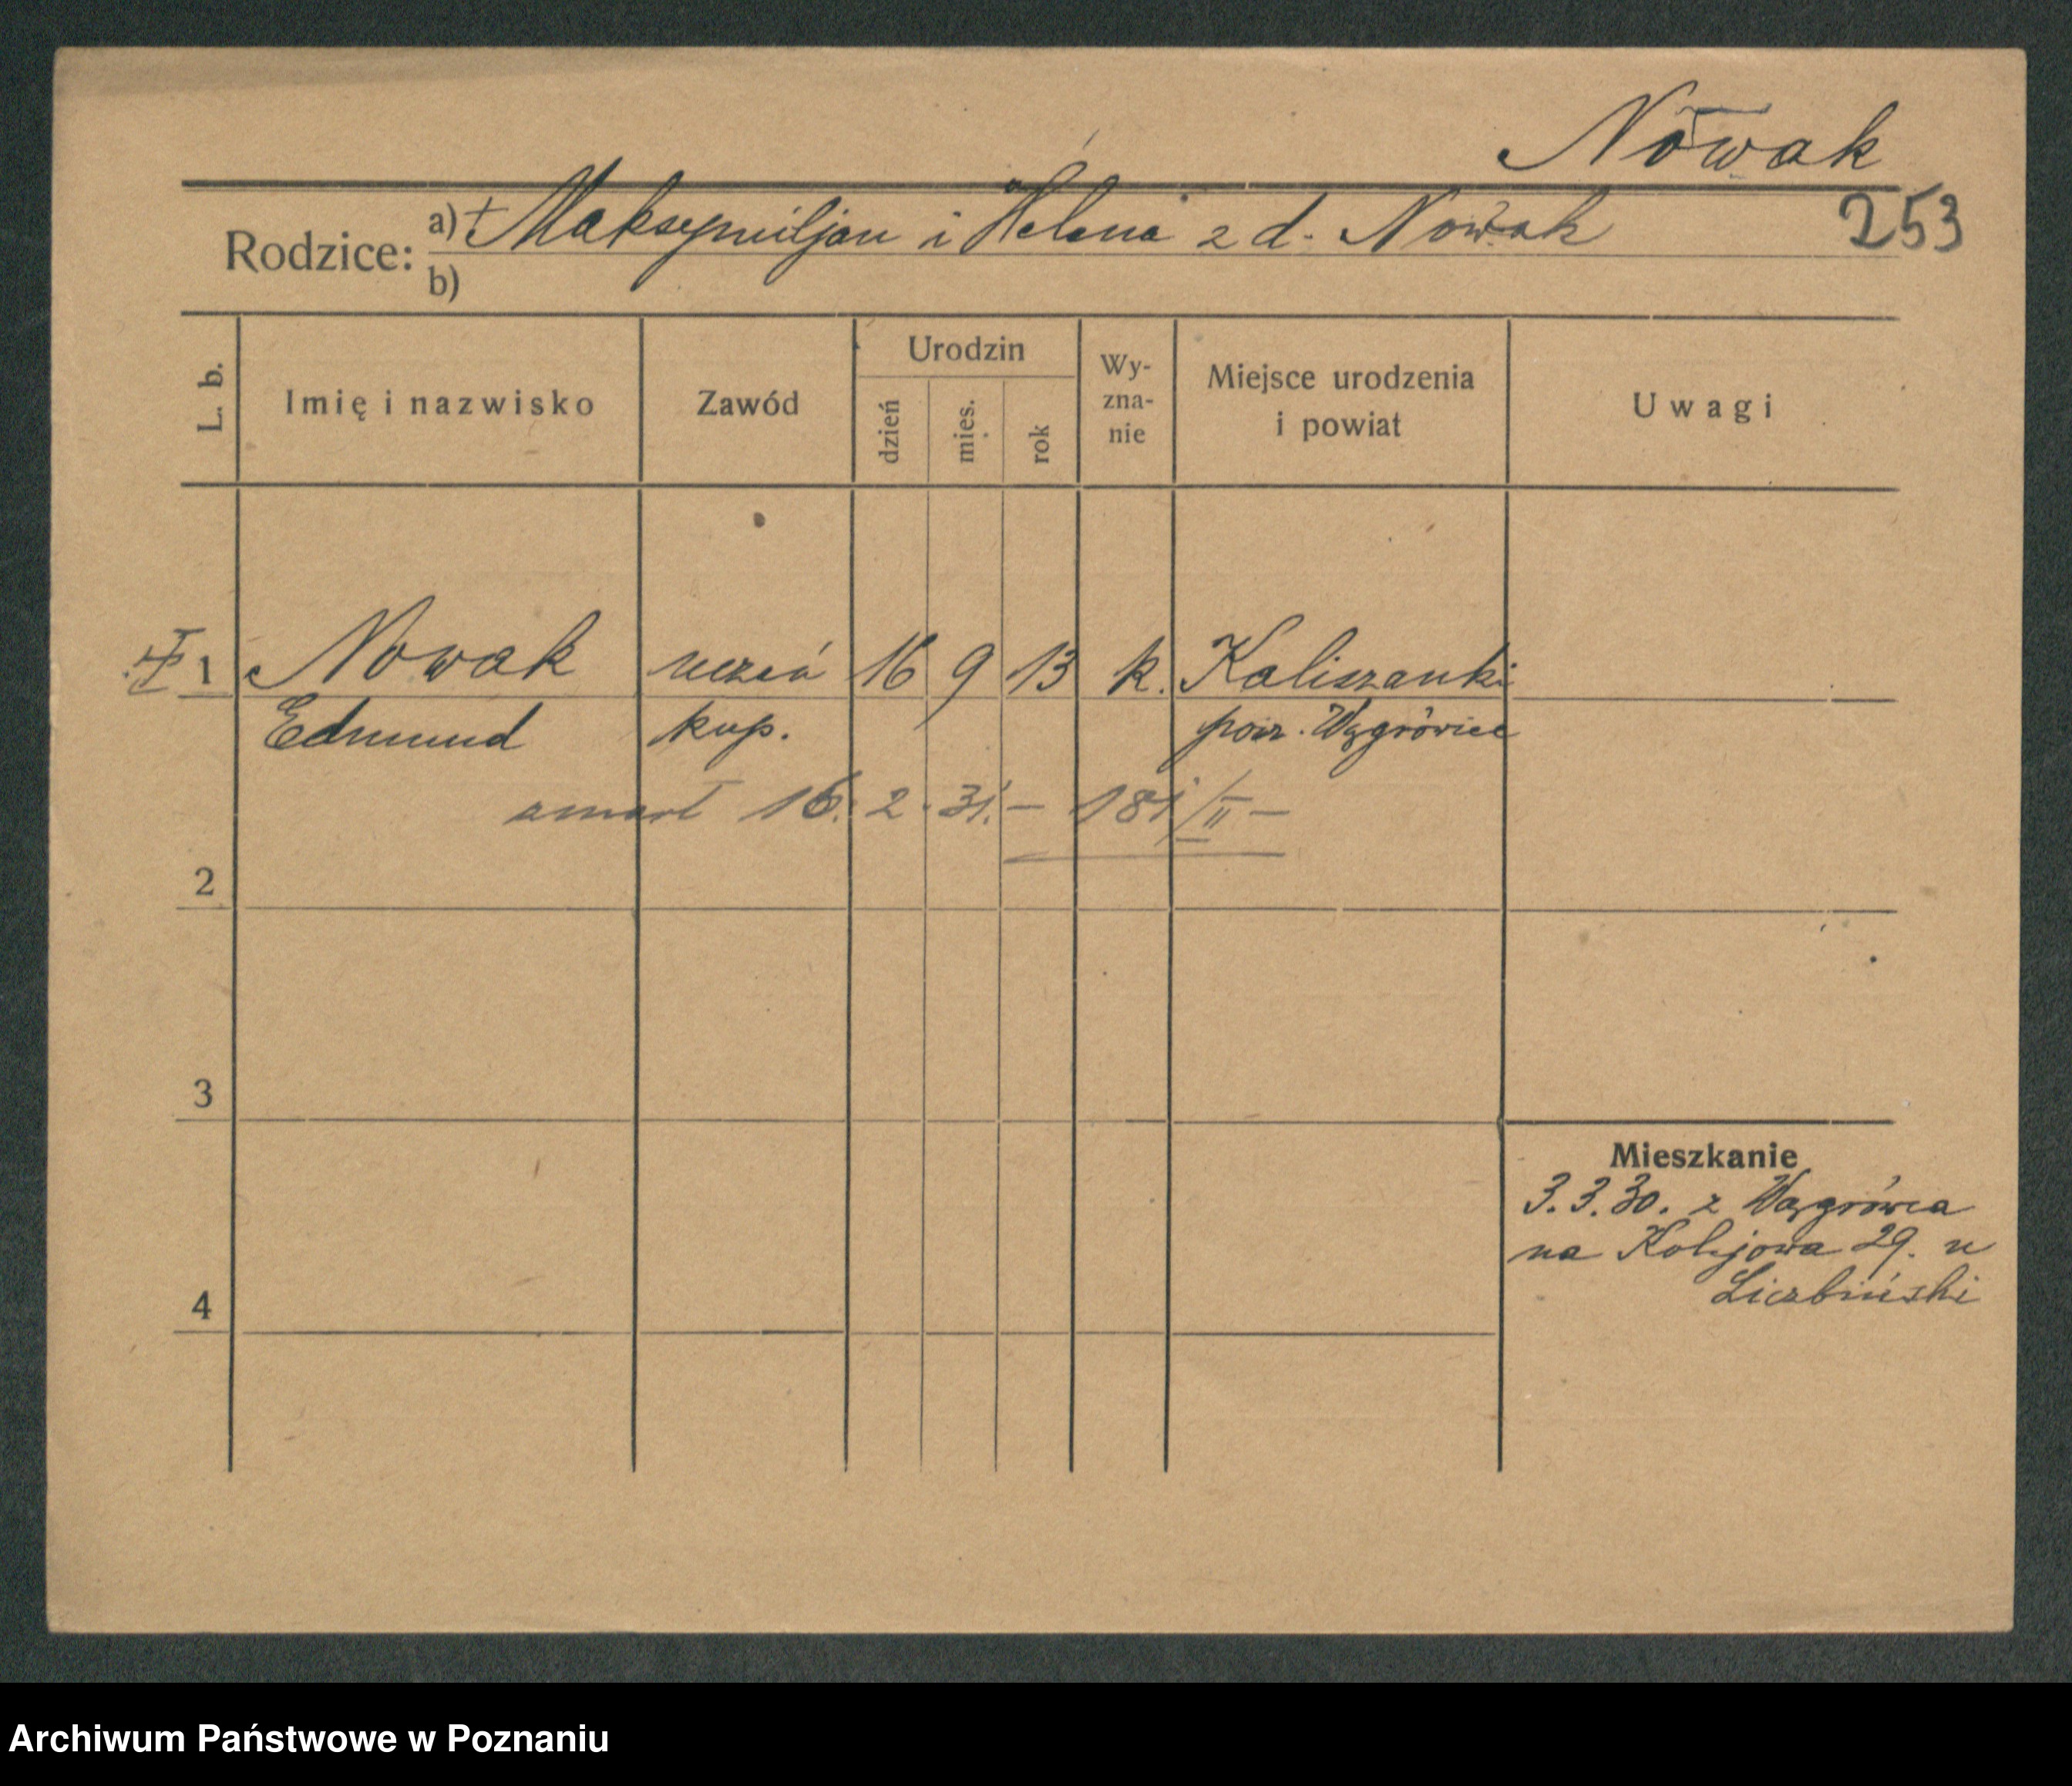 Nowak
253
Rodzice: a) + Maksymiljan i Helena z d. Nowak
b)
L. b.
Imię i nazwisko
Zawód
Urodzin
dzień
mies.
rok
Wy-
zna-
nie
Miejsce urodzenia
i powiat
Uwagi
1 Nowak uczeń 16 9 13 k. Kaliszanki
Edmund kup. pow. Wągrówiec
zmarł 16. 2. 31. – 181/II –
2
3
4
Mieszkanie
3. 3. 30. z Wągrówca
na Kolejowa 29. u
Liczbiński
Archiwum Państwowe w Poznaniu